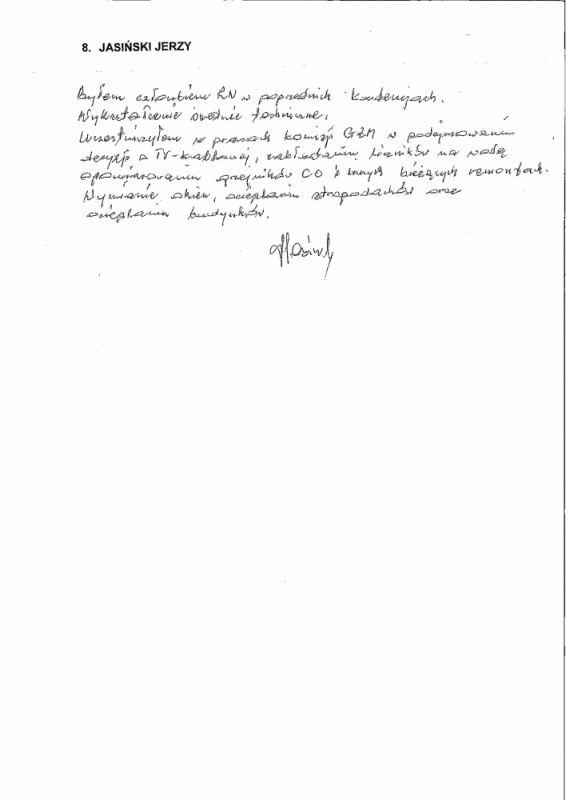 8. JASIŃSKI JERZY
Byłem członkiem RN w poprzednich kadencjach.
Wykształcenie średnie techniczne,
Uczestniczyłem w pracach komisji GZM w podejmowaniu
decyzji o TV-kablowej, zakładaniu liczników na wodę
opomiarowaniu grzejników CO i innych bieżących remontach.
Wymianie okien, ociepleniu stropodachów oraz
ociepleniu budynków.